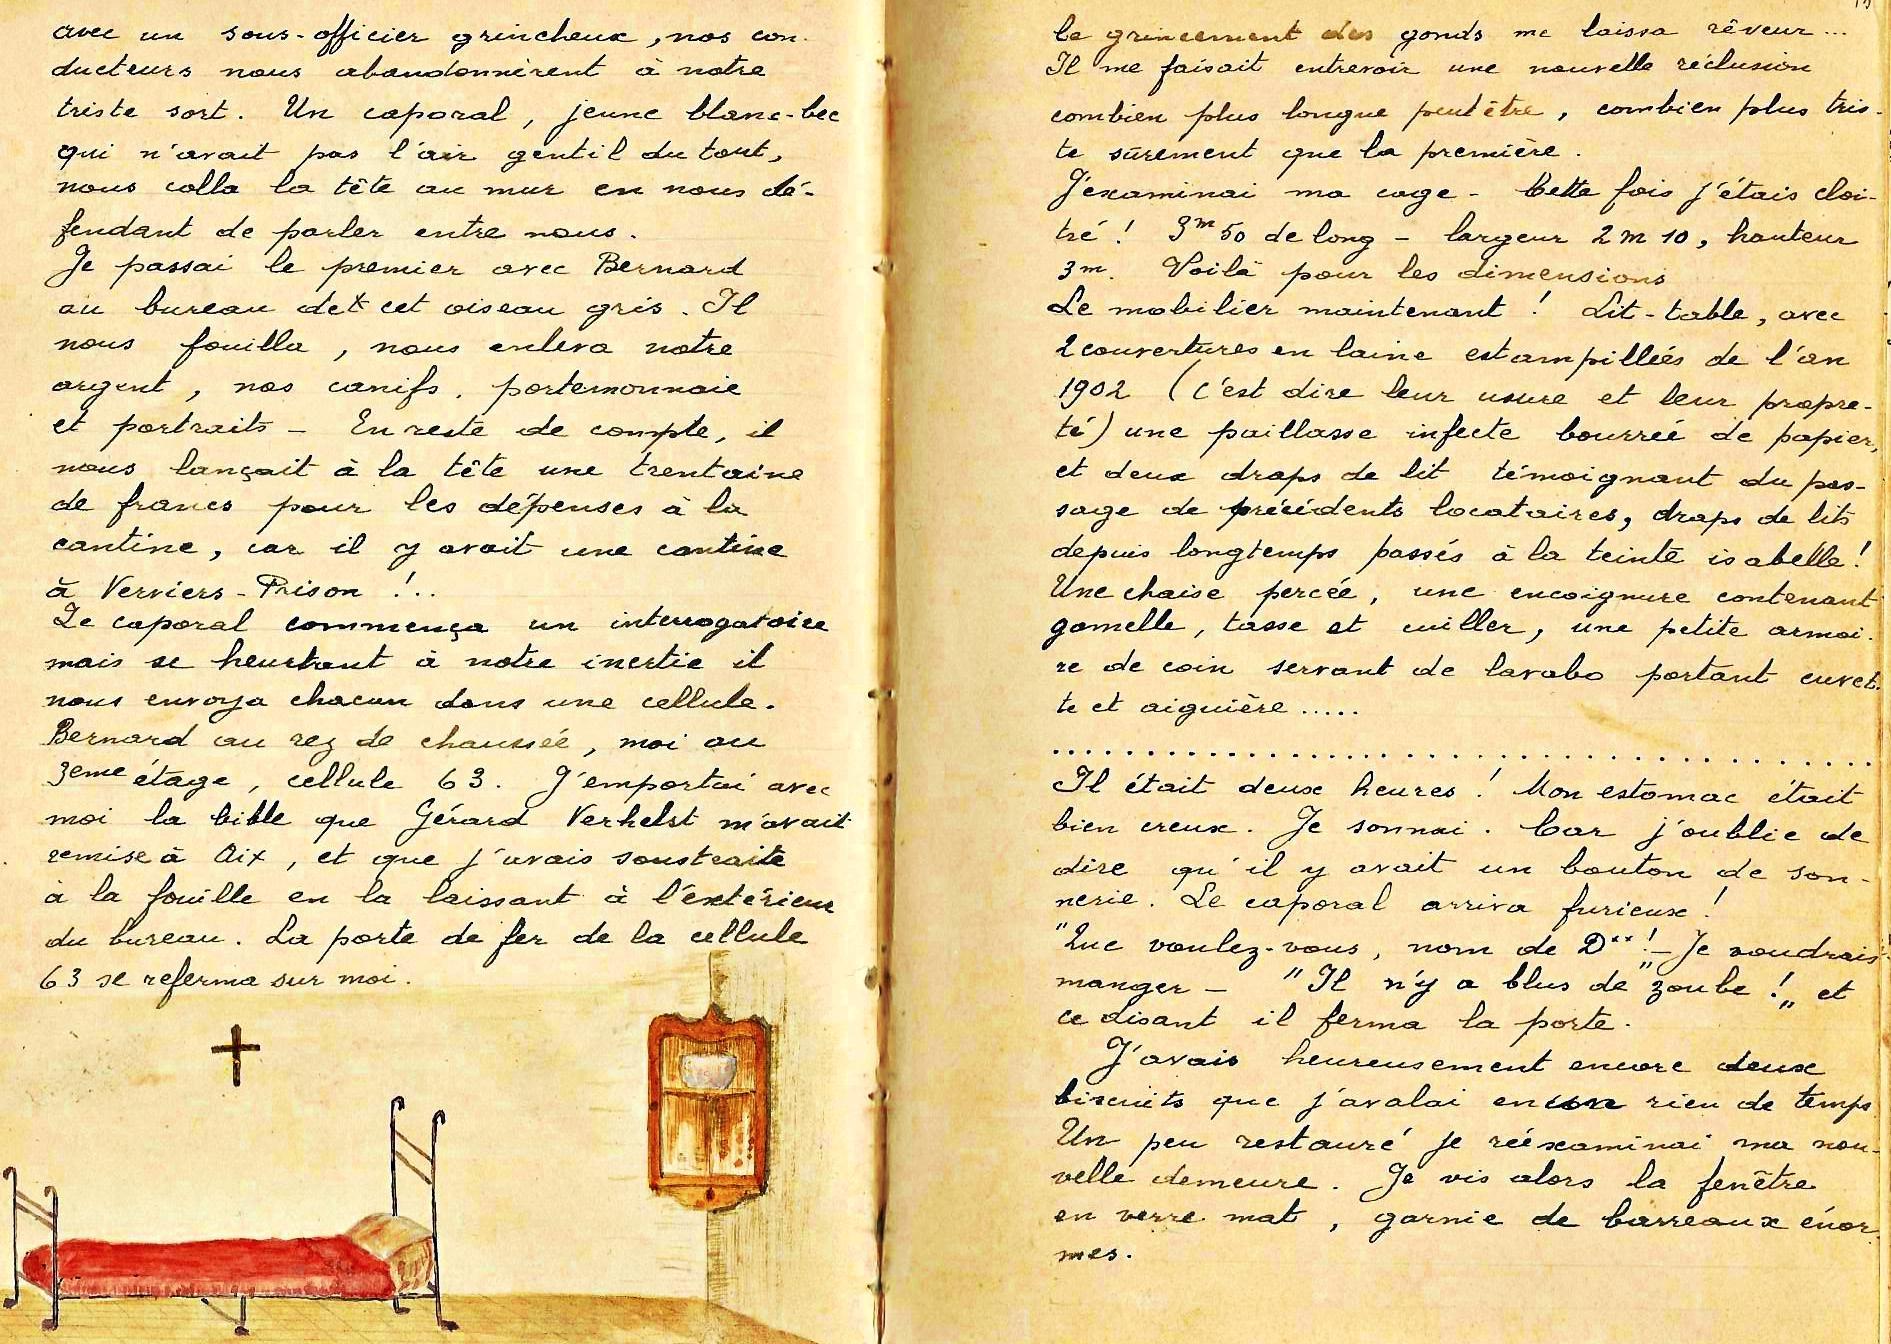 avec un sous-officier grincheux, nos con-
ducteurs nous abandonnèrent à notre
triste sort. Un caporal, jeune blanc-bec
qui n'avait pas l'air gentil du tout,
nous colla la tête au mur en nous dé-
fendant de parler entre nous.
Je passai le premier avec Bernard
au bureau de cet oiseau gris. Il
nous fouilla, nous enleva notre
argent, nos canifs, portemonnaie
et portraits - En reste de compte, il
nous lançait à la tête une trentaine
de francs pour les dépenses à la
cantine, car il y avait une cantine
à Verviers-Prison !..
Le caporal commença un interrogatoire
mais se heurtant à notre inertie il
nous envoya chacun dans une cellule.
Bernard au rez de chaussée, moi au
3eme étage, cellule 63. J'emportai avec
moi la bible que Gérard Verhelst m'avait
remise à Aix, et que j'avais soustraite
à la fouille en la laissant à l'extérieur
du bureau. La porte de fer de la cellule
63 se referma sur moi.
le grincement des gonds me laissa rêveur...
Il me faisait entrevoir une nouvelle réclusion
combien plus longue peut être, combien plus tris-
te sûrement que la première.
J'examinai ma cage - Cette fois j'étais cloî-
tré ! 3m50 de long - largeur 2m10, hauteur
3m. Voilà pour les dimensions
Le mobilier maintenant ! Lit-table, avec
2 couvertures en laine estampillées de l'an
1902 (c'est dire leur usure et leur propre-
té) une paillasse infecte bourrée de papier,
et deux draps de lit témoignant du pas-
sage de précédents locataires, draps de lits
depuis longtemps passés à la teinte isabelle!
Une chaise percée, une encoignure contenant
gamelle, tasse et cuiller, une petite armoi-
re de coin servant de lavabo portant cuvet-
te et aiguière .....
........................................
Il était deux heures ! Mon estomac était
bien creux. Je sonnai. Car j'oublie de
dire qu'il y avait un bouton de son-
nerie. Le caporal arriva furieux !
"Que voulez-vous, nom de D** !" - Je voudrais
manger - "Il n'y a blus de zoube !" et
ce disant il ferma la porte.
J'avais heureusement encore deux
biscuits que j'avalai en un rien de temps
Un peu restauré je réexaminai ma nou-
velle demeure. Je vis alors la fenêtre
en verre mat, garnie de barreaux énor-
mes.